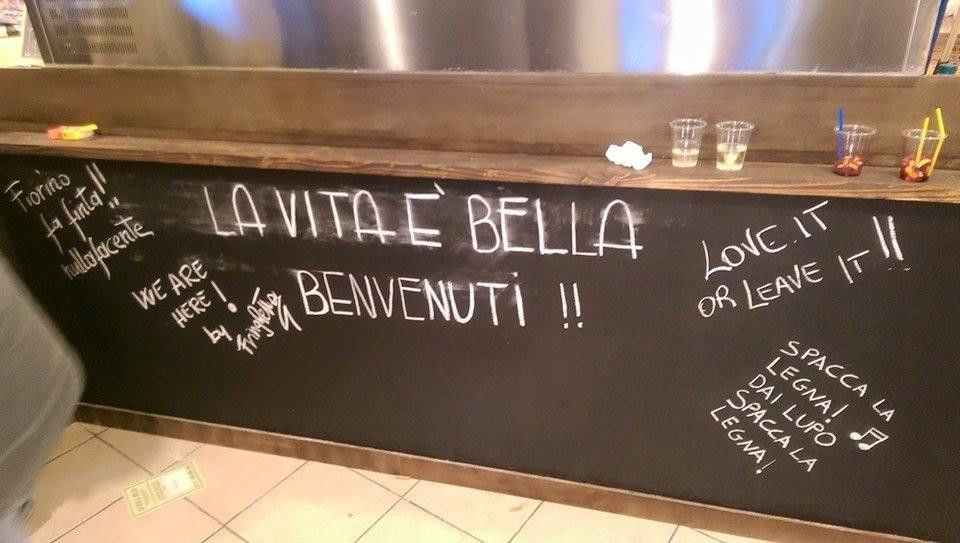 Fiorino
fa finta!!
nullafacente
WE ARE
HERE!
by
LA VITA È BELLA
BENVENUTI !!
LOVE IT
OR LEAVE IT !!
SPACCA LA
LEGNA!
DAI LUPO
SPACCA LA
LEGNA!